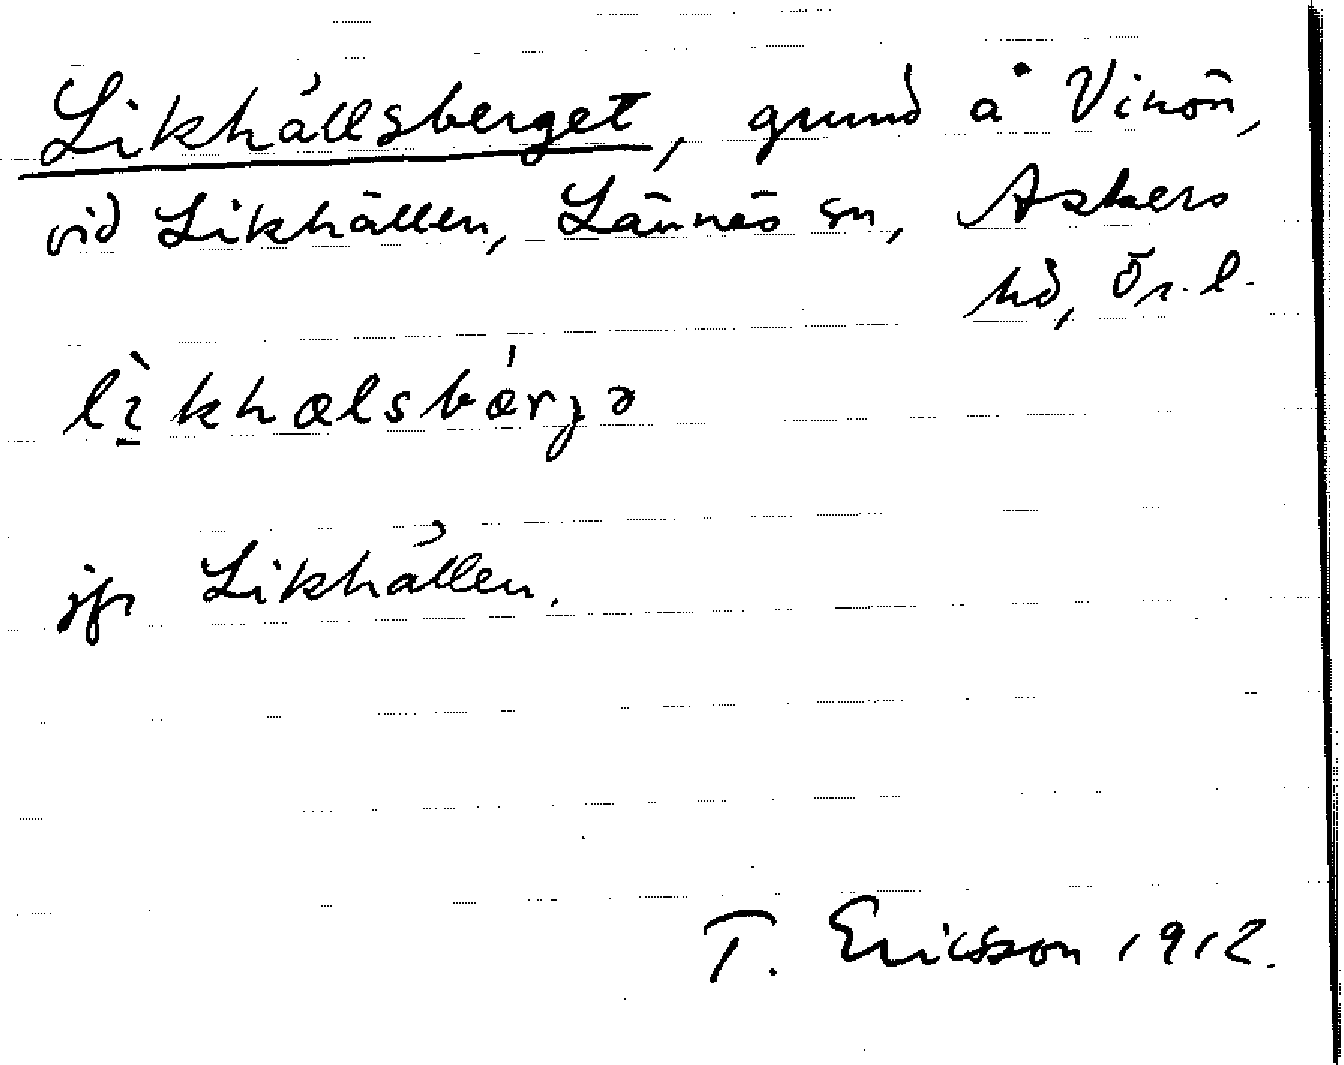 Likhällsberget, grund å Vinön,
vid Likhällen, Lännäs sn, Askers
hd, Ör. l.
lìkhælsbǽrjə
jfr Likhällen.
T. Ericsson 1912.